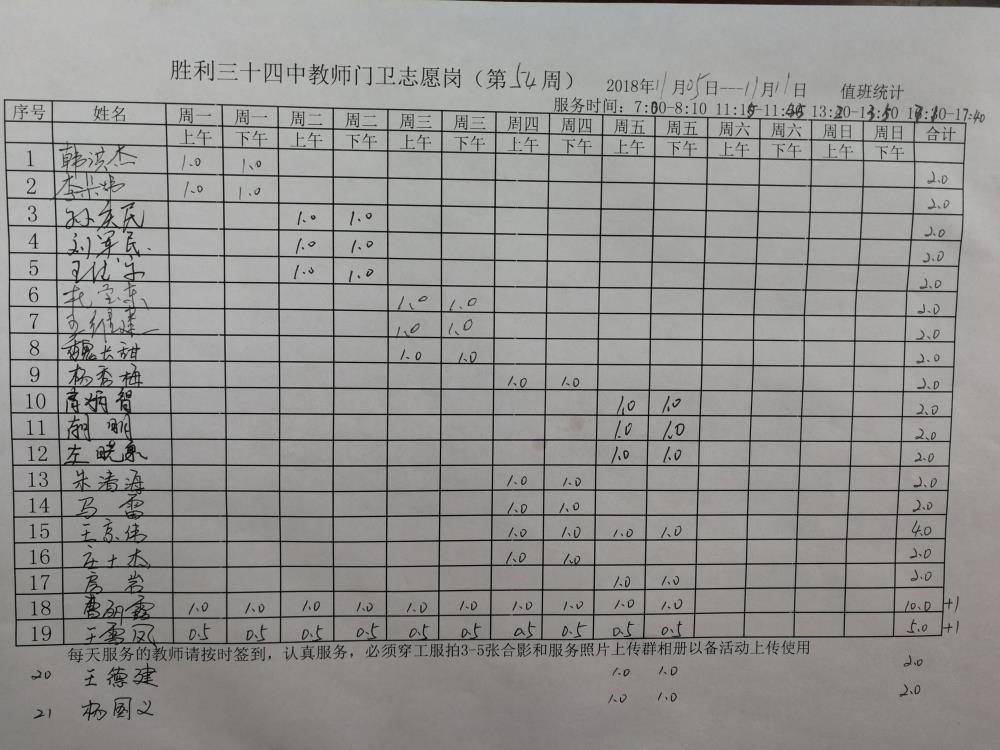 胜利三十四中教师门卫志愿岗（第54周） 2018年11月05日---11月11日 值班统计
服务时间：7:30-8:10 11:15-11:45 13:20-13:50 -17:40
序号 姓名 周一 周一 周二 周二 周三 周三 周四 周四 周五 周五 周六 周六 周日 周日 合计
上午 下午 上午 下午 上午 下午 上午 下午 上午 下午 上午 下午 上午 下午
1 韩洪杰 1.0 1.0 2.0
2 1.0 1.0 2.0
3 孙庆民 1.0 1.0 2.0
4 刘军民 1.0 1.0 2.0
5 1.0 1.0 2.0
6 1.0 1.0 2.0
7 王维建 1.0 1.0 2.0
8 魏长甜 1.0 1.0 2.0
9 杨秀梅 1.0 1.0 2.0
10 1.0 1.0 2.0
11 胡明 1.0 1.0 2.0
12 左晓泉 1.0 1.0 2.0
13 朱清海 1.0 1.0 2.0
14 马雷 1.0 1.0 2.0
15 王京伟 1.0 1.0 1.0 1.0 4.0
16 庄士杰 1.0 1.0 2.0
17 房岩 1.0 1.0 2.0
18 1.0 1.0 1.0 1.0 1.0 1.0 1.0 1.0 1.0 1.0 10.0 +1
19 王雪凤 0.5 0.5 0.5 0.5 0.5 0.5 0.5 0.5 0.5 0.5 5.0 +1
每天服务的教师请按时签到，认真服务，必须穿工服拍3-5张合影和服务照片上传群相册以备活动上传使用
20 王德建 1.0 1.0 2.0
21 杨国义 1.0 1.0 2.0